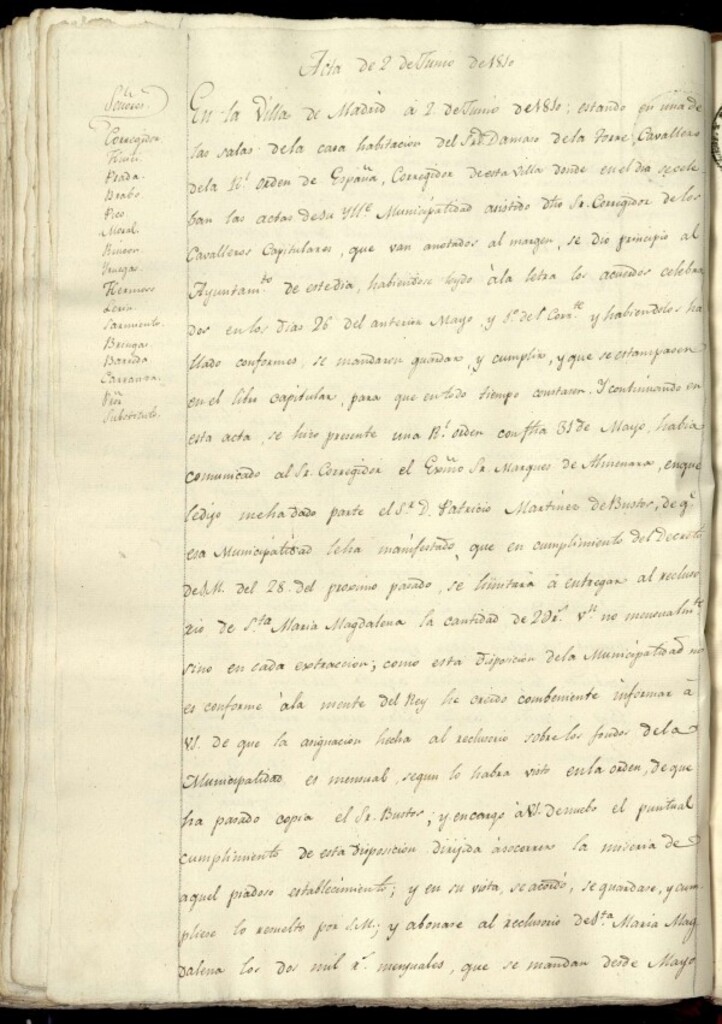 Acta de 2 de Junio de 1810
Señores
Corregidor
Prada.
Brabo.
Pico
Moral
Rincon
Hermoso
Leon
Sarmiento
Bringas
Barreda
Carranza
Substituto.
En la Villa de Madrid á 2 de Junio de 1810: estando en una de
las salas de la casa habitacion del Sr. Dn. Damaso de la Torre, Cavallero
de la Rl. orden de España, Corregidor de esta villa donde en el dia se cele-
bran las actas de su Ylle. Municipalidad asistido dho Sr. Corregidor de los
Cavalleros Capitulares, que van anotados al margen, se dio principio al
Ayuntamto. de este dia, habiendose leydo à la letra los acuerdos celebra
dos en los dias 26 del anterior Mayo y 1º. del Corrte. y habiendolos ha
llado conformes, se mandaron guardar, y cumplir, y que se estampasen
en el libro capitular, para que en todo tiempo constasen. Y continuando en
esta acta, se hizo presente una Rl. orden con fha 31 de Mayo, habia
comunicado al Sr. Corregidor el Exmo Sr. Marques de Almenara, en que
le dijo me ha dado parte el Sr. D. Patricio Martinez de Bustos, de qe.
esa Municipalidad le ha manifestado, que en cumplimiento del Decreto
de S.M. del 28. del proximo pasado, se limitará à entregar al reclusо
rio de Sta. Maria Magdalena la cantidad de 2Drs. vn. no mensualmte.
sino en cada extraccion; como esta disposicion de la Municipalidad no
es conforme à la mente del Rey he creido combeniente informar à
VS. de que la asignacion hecha al reclusorio sobre los fondos de la
Municipalidad es mensual, segun lo habra visto en la orden, de que
ha pasado copia el Sr. Bustos; y encargo à VS. de nuebo el puntual
cumplimiento de esta disposicion dirijida à socorrer la miseria de
aquel piadoso establecimiento; y en su vista, se acordó, se guardase, y cum-
pliese lo resuelto por S.M.; y abonase al reclusorio de Sta. Maria Mag
dalena los dos mil rs. mensuales, que se mandan desde Mayo